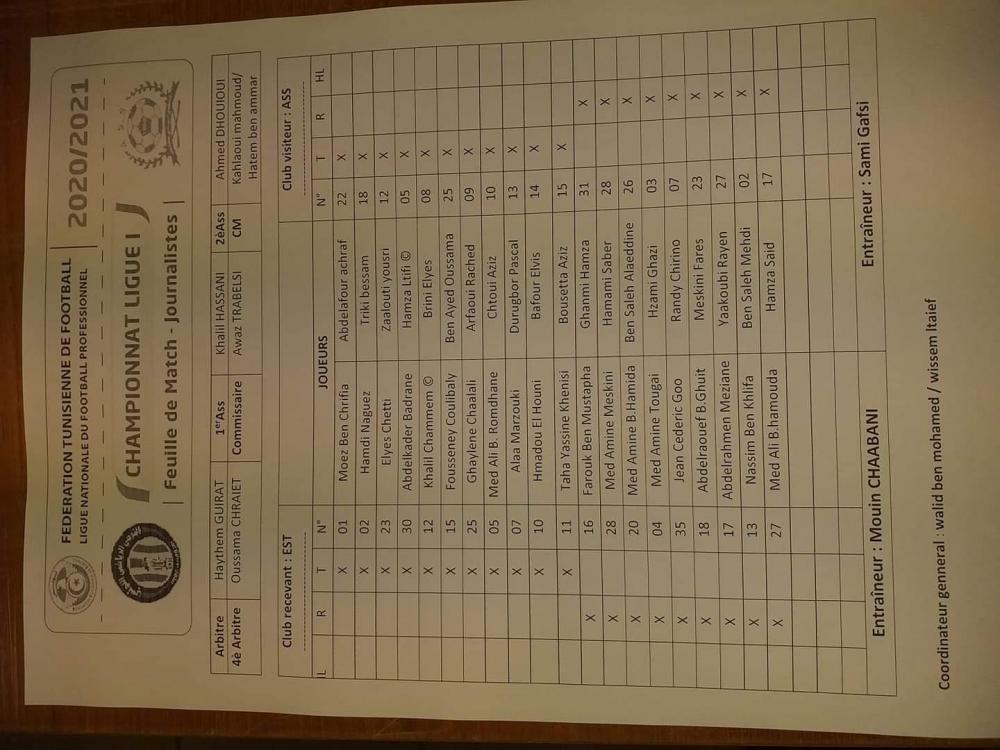 FEDERATION TUNISIENNE DE FOOTBALL
LIGUE NATIONALE DU FOOTBALL PROFESSIONNEL
2020/2021
CHAMPIONNAT LIGUE I
Feuille de Match - Journalistes
Arbitre Haythem GUIRAT 1erAss Khalil HASSANI 2èAss Ahmed DHOUIOUI
4è Arbitre Oussama CHRAIET Commissaire Awaz TRABELSI CM Kahlaoui mahmoud/
Hatem ben ammar
Club recevant : EST JOUEURS Club visiteur : ASS
L R T N° N° T R HL
X 01 Moez Ben Chrifia Abdelafour achraf 22 X
X 02 Hamdi Naguez Triki bessam 18 X
X 23 Elyes Chetti Zaalouti yousri 12 X
X 30 Abdelkader Badrane Hamza Ltifi © 05 X
X 12 Khalil Chammem © Brini Elyes 08 X
X 15 Fousseney Coulibaly Ben Ayed Oussama 25 X
X 25 Ghaylene Chaalali Arfaoui Rached 09 X
X 05 Med Ali B. Romdhane Chtoui Aziz 10 X
X 07 Alaa Marzouki Durugbor Pascal 13 X
X 10 Hmadou El Houni Bafour Elvis 14 X
X 11 Taha Yassine Khenisi Bousetta Aziz 15 X
X 16 Farouk Ben Mustapha Ghanmi Hamza 31 X
X 28 Med Amine Meskini Hamami Saber 28 X
X 20 Med Amine B.Hamida Ben Saleh Alaeddine 26 X
X 04 Med Amine Tougai Hzami Ghazi 03 X
X 35 Jean Cederic Goo Randy Chirino 07 X
X 18 Abdelraouef B.Ghuit Meskini Fares 23 X
X 17 Abdelrahmen Meziane Yaakoubi Rayen 27 X
X 13 Nassim Ben Khlifa Ben Saleh Mehdi 02 X
X 27 Med Ali B.hamouda Hamza Said 17 X
Entraîneur : Mouin CHAABANI Entraîneur : Sami Gafsi
Coordinateur genneral : walid ben mohamed / wissem ltaief